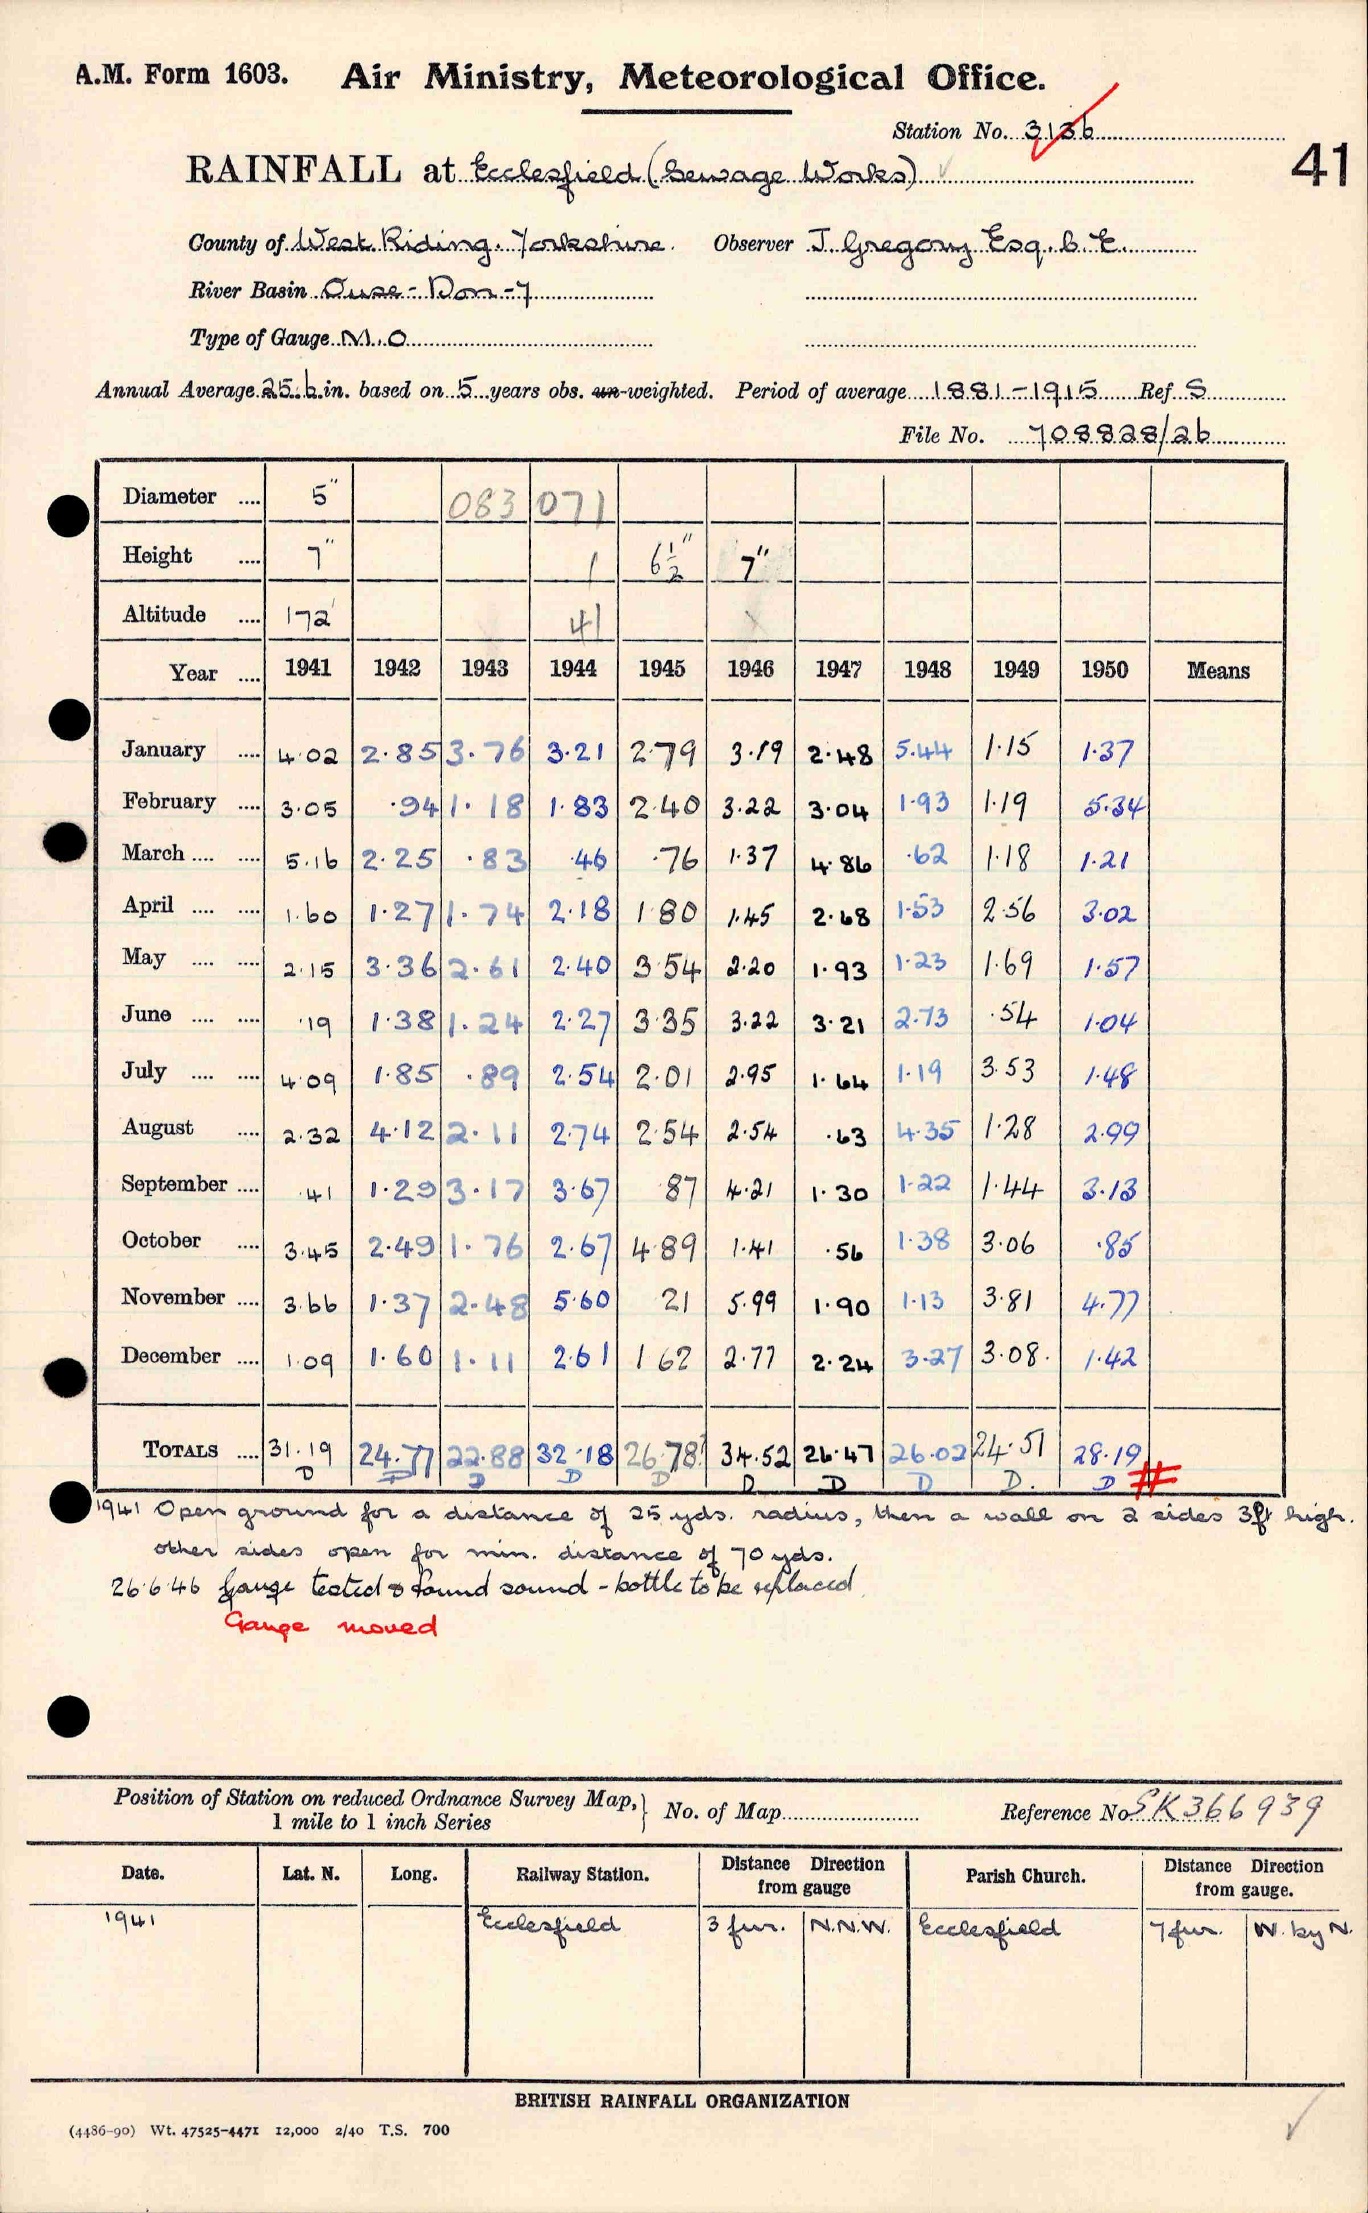 A.M. Form 1603. Air Ministry, Meteorological Office.
Station No. 3136
41
RAINFALL at Ecclesfield (Sewage Works)
County of West Riding. Yorkshire. Observer J. Gregory Esq. C.E.
River Basin Ouse - Don - 7
Type of Gauge M.O
Annual Average 25.6 in. based on 5 years obs. un-weighted. Period of average 1881-1915 Ref. S
File No. 708828/26
Diameter .... 5" 083 071
Height .... 7" 1 6½" 7"
Altitude .... 172' 41
Year .... 1941 1942 1943 1944 1945 1946 1947 1948 1949 1950 Means
January .... 4.02 2.85 3.76 3.21 2.79 3.19 2.48 5.44 1.15 1.37
February .... 3.05 .94 1.18 1.83 2.40 3.22 3.04 1.93 1.19 5.34
March .... .... 5.16 2.25 .83 .46 .76 1.37 4.86 .62 1.18 1.21
April .... .... 1.60 1.27 1.74 2.18 1.80 1.45 2.68 1.53 2.56 3.02
May .... .... 2.15 3.36 2.61 2.40 3.54 2.20 1.93 1.23 1.69 1.57
June .... .... .19 1.38 1.24 2.27 3.35 3.22 3.21 2.73 .54 1.04
July .... .... 4.09 1.85 .89 2.54 2.01 2.95 1.64 1.19 3.53 1.48
August .... 2.32 4.12 2.11 2.74 2.54 2.54 .63 4.35 1.28 2.99
September .... .41 1.29 3.17 3.67 87 4.21 1.30 1.22 1.44 3.13
October .... 3.45 2.49 1.76 2.67 4.89 1.41 .56 1.38 3.06 .85
November .... 3.66 1.37 2.48 5.60 21 5.99 1.90 1.13 3.81 4.77
December .... 1.09 1.60 1.11 2.61 1.62 2.77 2.24 3.27 3.08. 1.42
TOTALS .... 31.19 24.77 22.88 32.18 26.78 34.52 26.47 26.02 24.51 28.19
D D D D D D D D D. D #
1941 Open ground for a distance of 25 yds. radius, then a wall on 2 sides 3ft high.
other sides open for min. distance of 70 yds.
26.6.46 Gauge tested & found sound - bottle to be replaced
Gauge moved
Position of Station on reduced Ordnance Survey Map, 1 mile to 1 inch Series } No. of Map Reference No. SK366939
Date. Lat. N. Long. Railway Station. Distance Direction from gauge Parish Church. Distance Direction from gauge.
1941 Ecclesfield 3 fur. N.N.W. Ecclesfield 7 fur. W. by N.
BRITISH RAINFALL ORGANIZATION
(4486-90) Wt. 47525-4471 12,000 2/40 T.S. 700